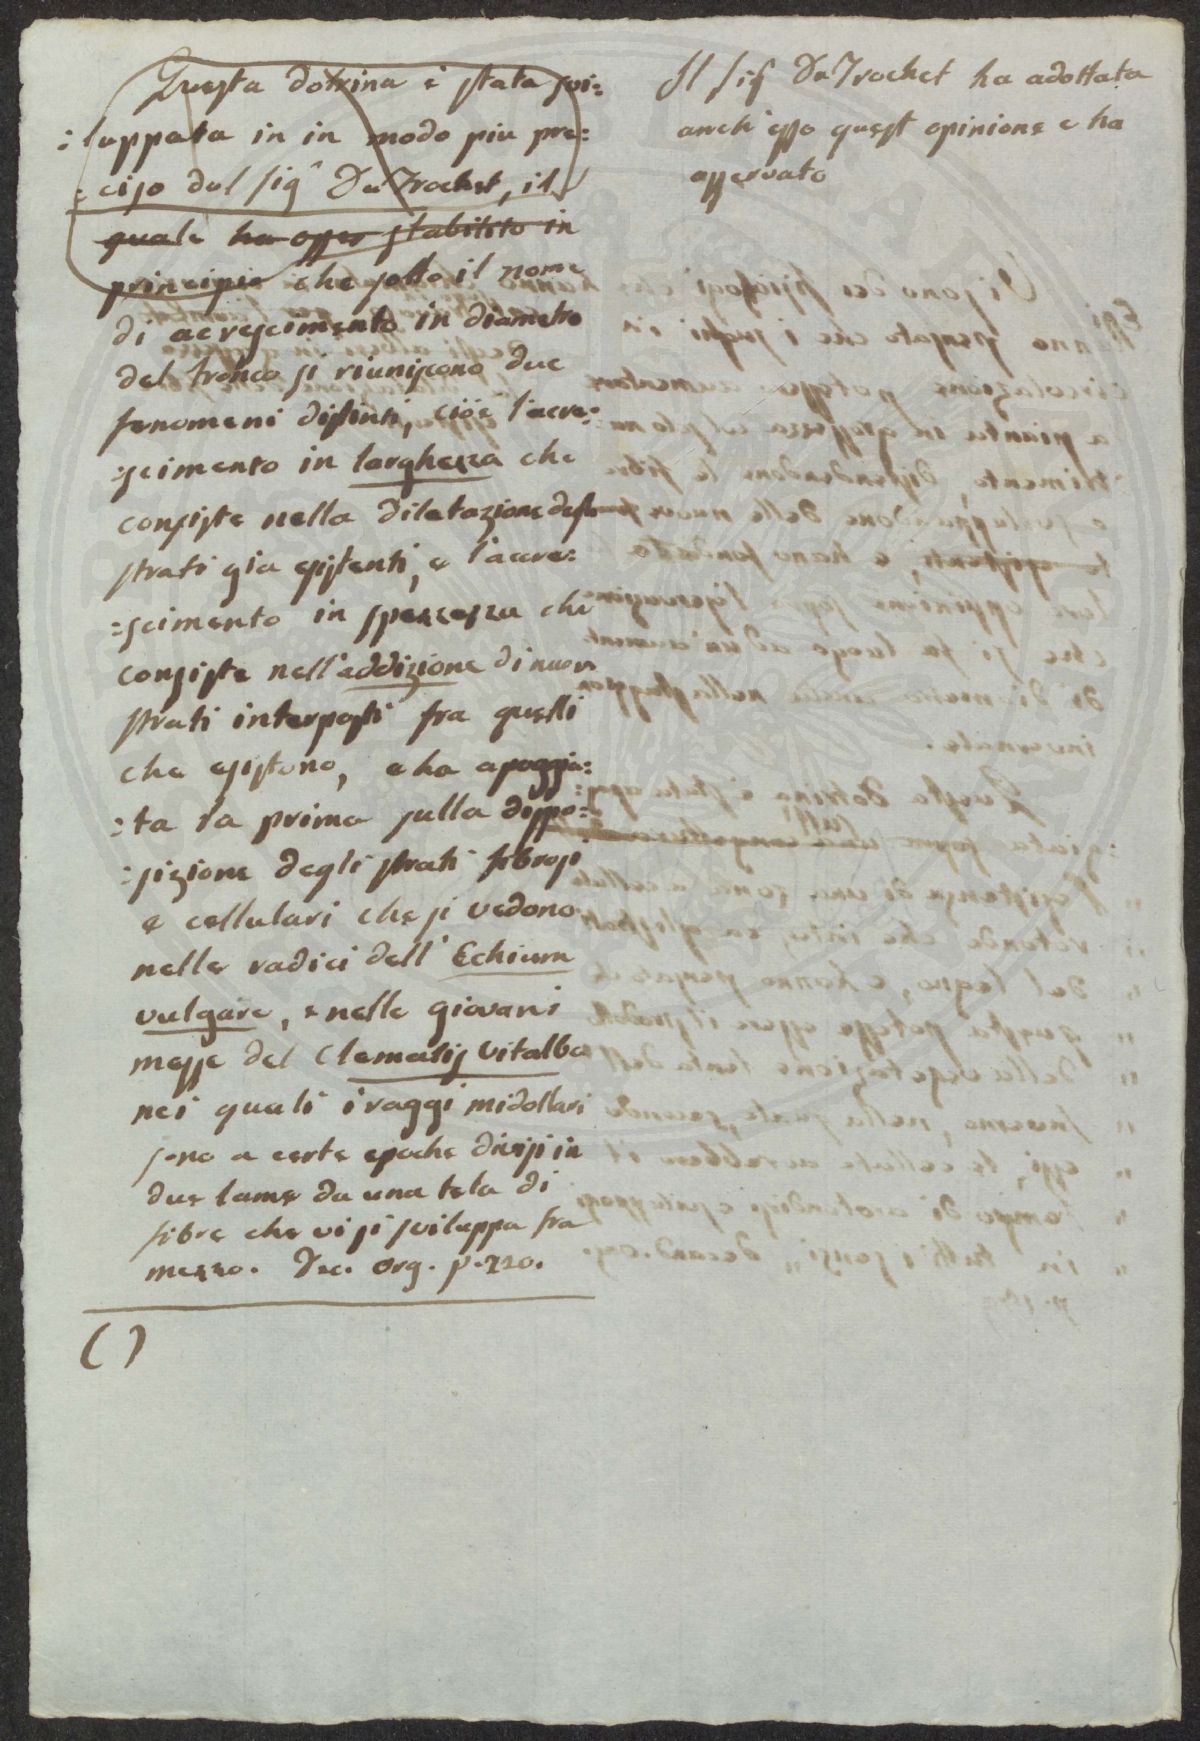 Questa dotrina è stata svi=
=luppata in in modo piu pre=
=ciso dal sigr Du Trochet, il
quale ha osser stabilito in
principio che sotto il nome
di acrescimento in diametro
del tronco si riuniscono due
fenomeni distinti, cioè l'acre=
=scimento in larghezza che
consiste nella dilatazione degli
strati gia esistenti, e l'accre=
=scimento in spezzezza che
consiste nell'addizione di nuovi
strati interposti fra quelli
che esistono, e ha apoggia=
=ta la prima sulla dispo=
=sizione degli strati fibrosi
e cellulari che si vedono
nelle radici dell' Echium
vulgare, e nelle giovani
messe del Clematis Vitalba
nei quali i raggi midollari
sono a certe epoche divisi in
due lame da una tela di
fibre che vi si sviluppa fra
mezzo. Dec. Org. p. 210.
( )
Il sig Du Trochet ha adottata
anch'esso quest opinione e ha
osservato